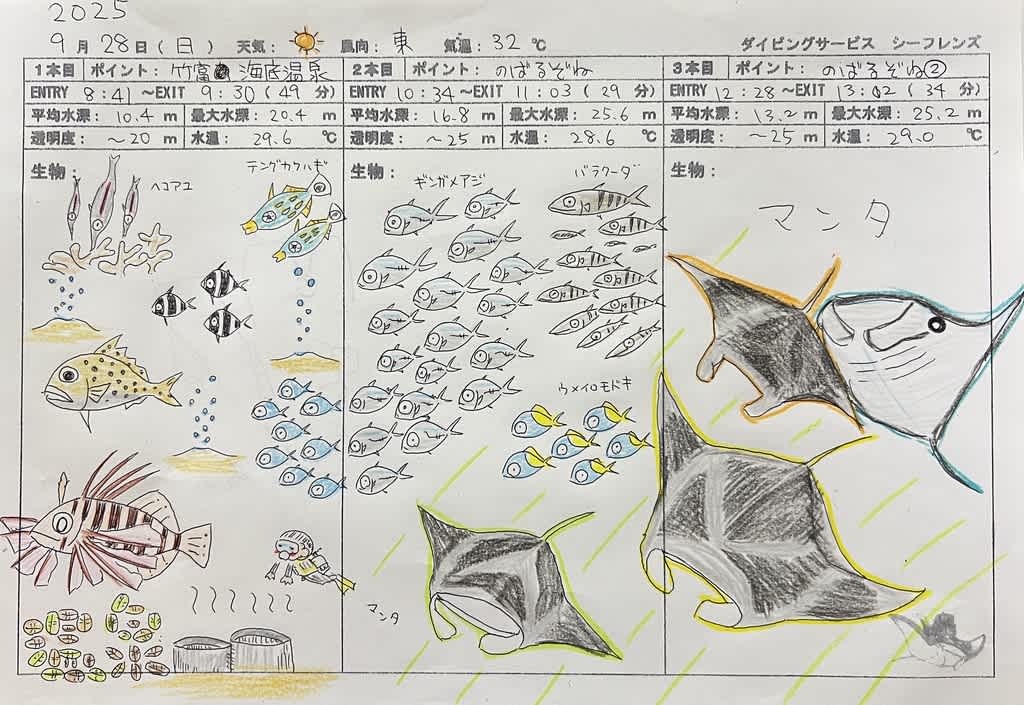 2025
9月28日(日) 天気: 風向: 東 気温: 32℃ ダイビングサービス シーフレンズ
1本目 ポイント: 竹富 海底温泉
ENTRY 8:41 ~EXIT 9:30 (49 分)
平均水深: 10.4 m 最大水深: 20.4 m
透明度: ~20 m 水温: 29.6 ℃
生物:
ヘコアユ
テングカワハギ
2本目 ポイント: のばるぞね
ENTRY 10:34 ~EXIT 11:03 (29 分)
平均水深: 16.8 m 最大水深: 25.6 m
透明度: ~25 m 水温: 28.6 ℃
生物:
ギンガメアジ
バラクーダ
ウメイロモドキ
マンタ
3本目 ポイント: のばるぞね②
ENTRY 12:28 ~EXIT 13:02 (34 分)
平均水深: 13.2 m 最大水深: 25.2 m
透明度: ~25 m 水温: 29.0 ℃
生物:
マンタ